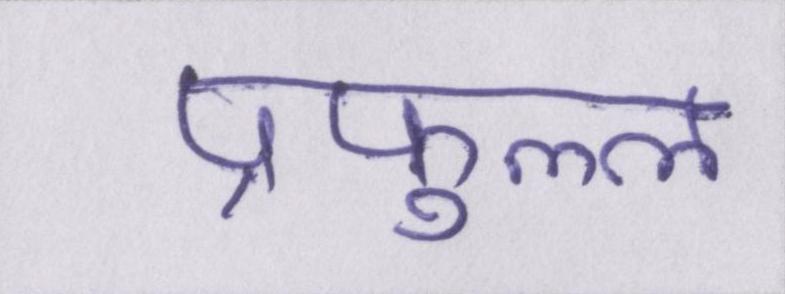 प्रफुल्ल